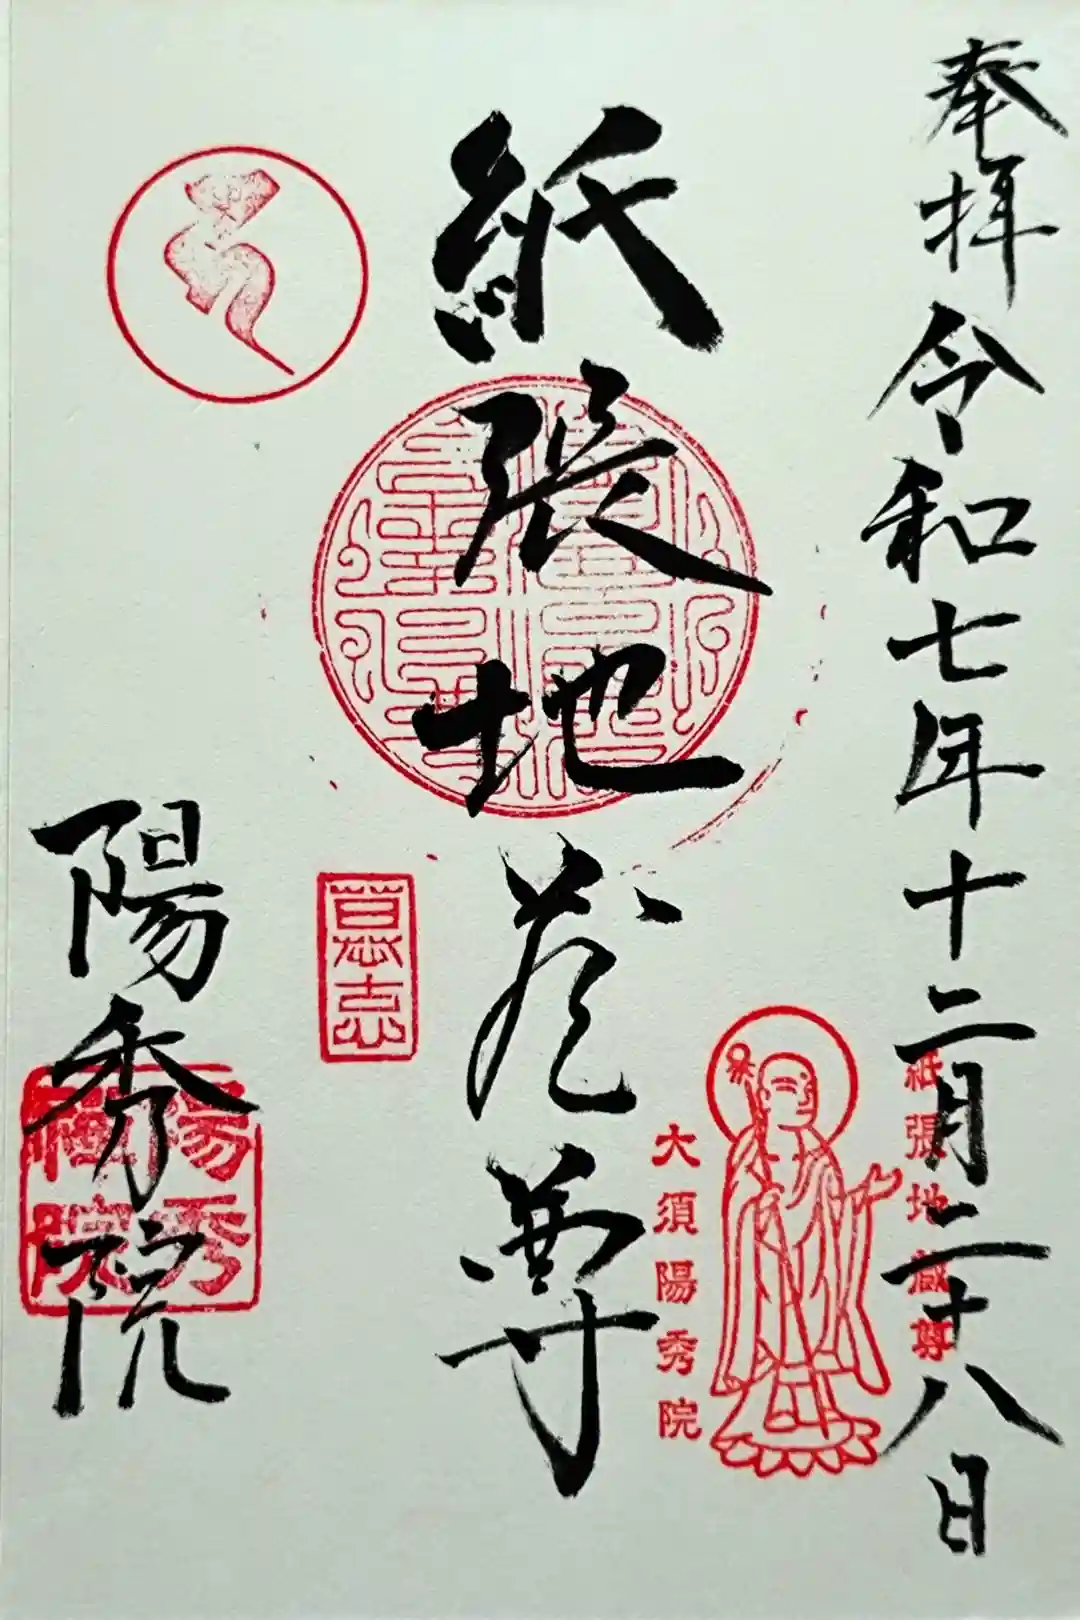 奉拝 令和七年十二月二十八日
紙張地蔵尊
陽秀院
紙張地蔵尊
大須陽秀院
陽秀
禅院